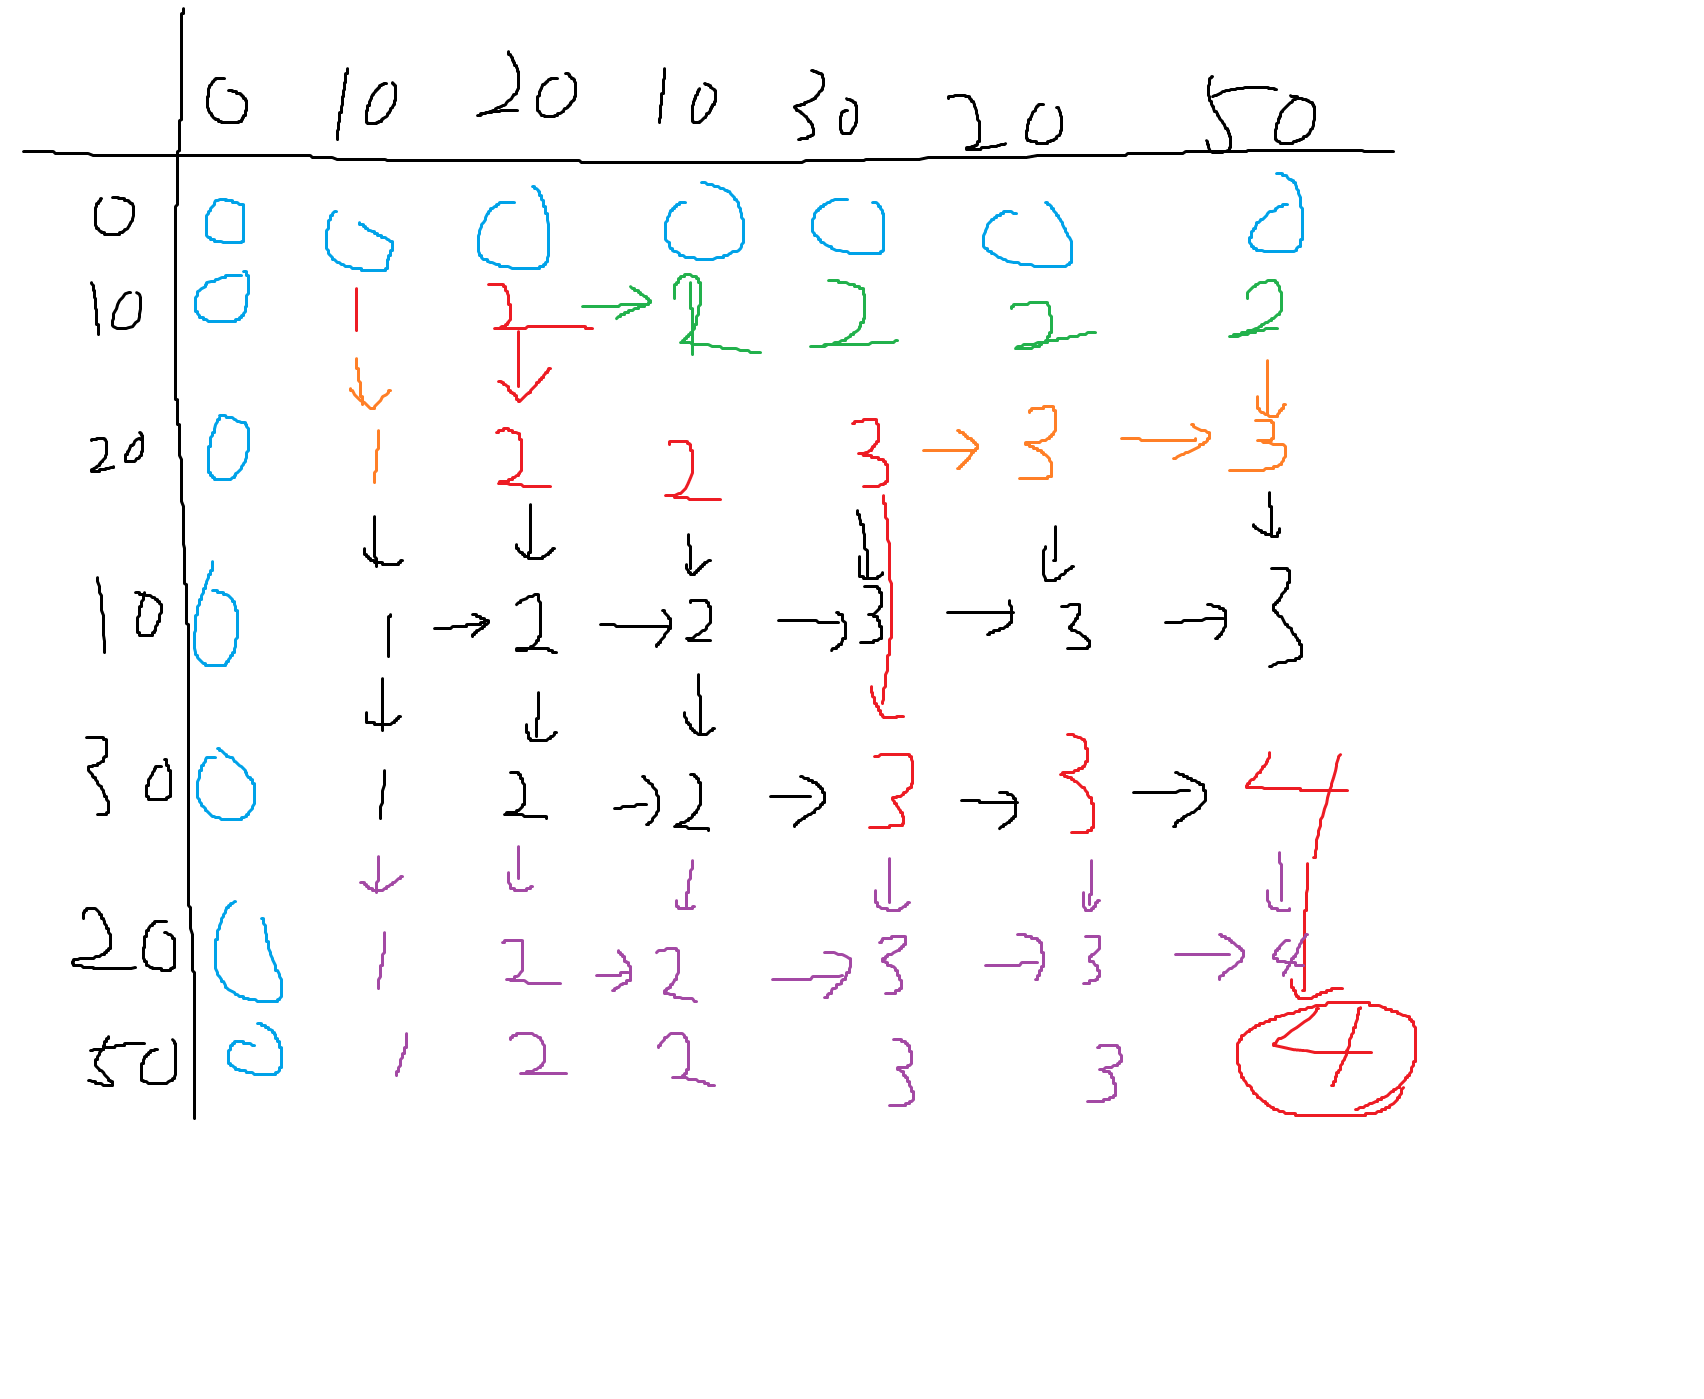 0 10 20 10 30 20 50
0 0 0 0 0 0 0 0
10 0 1 2 → 2 2 2 2
↓ ↓ ↓
20 0 1 2 2 3 → 3 → 3
↓ ↓ ↓ ↓ ↓ ↓
10 0 1 → 2 → 2 → 3 → 3 → 3
↓ ↓ ↓ ↓
30 0 1 2 → 2 → 3 → 3 → 4
↓ ↓ ↓ ↓ ↓ ↓
20 0 1 2 → 2 → 3 → 3 → 4
50 0 1 2 2 3 3 4